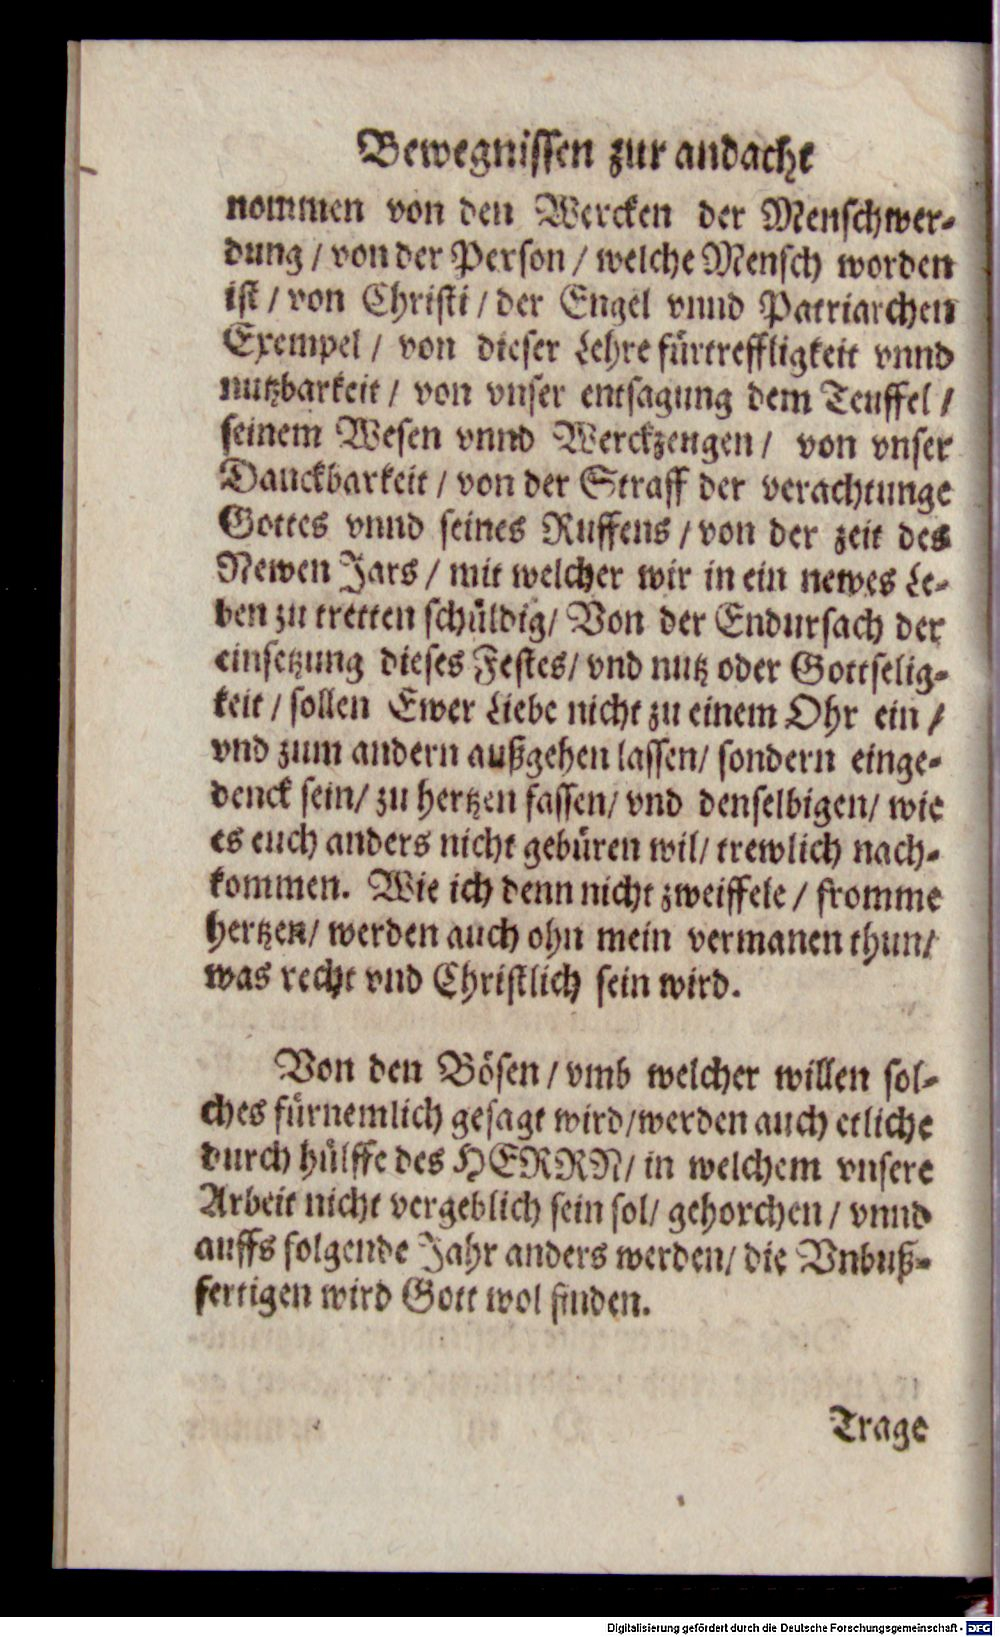 Bewegnissen zur andacht
nommen von den Wercken der Menschwer-
dung / von der Person / welche Mensch worden
ist / von Christi / der Engel vnnd Patriarchen
Exempel / von dieser Lehre fürtreffligkeit vnnd
nutzbarkeit / von vnser entsagung dem Teuffel /
seinem Wesen vnnd Werckzeugen / von vnser
Danckbarkeit / von der Straff der verachtunge
Gottes vnnd seines Ruffens / von der zeit des
Newen Jars / mit welcher wir in ein newes Le-
ben zu tretten schüldig / Von der Endursach der
einsetzung dieses Festes / vnd nutz oder Gottselig-
keit / sollen Ewer Liebe nicht zu einem Ohr ein /
vnd zum andern außgehen lassen / sondern einge-
denck sein / zu hertzen fassen / vnd denselbigen / wie
es euch anders nicht gebüren wil / trewlich nach-
kommen. Wie ich denn nicht zweiffele / fromme
hertzen / werden auch ohn mein vermanen thun /
was recht vnd Christlich sein wird.
Von den Bösen / vmb welcher willen sol-
ches fürnemlich gesagt wird / werden auch etliche
durch hülffe des HERRN / in welchem vnsere
Arbeit nicht vergeblich sein sol / gehorchen / vnnd
auffs folgende Jahr anders werden / die Vnbuß-
fertigen wird Gott wol finden.
Trage
Digitalisierung gefördert durch die Deutsche Forschungsgemeinschaft - DFG